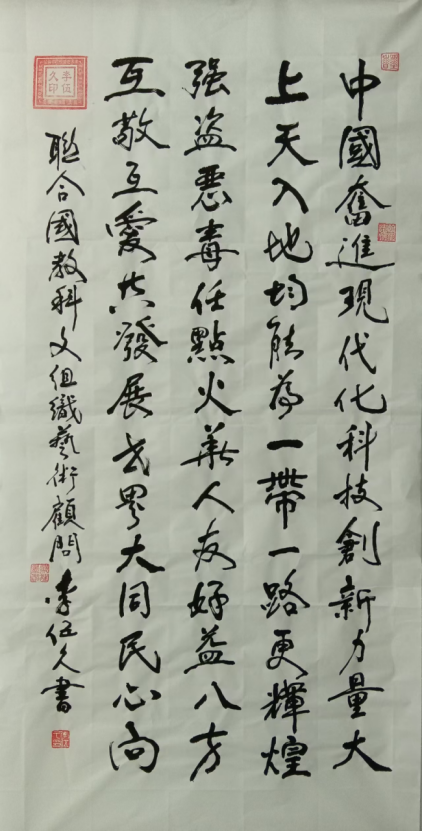 中國奮進現代化科技創新力量大
上天入地均能為一帶一路更輝煌
強盜惡毒任點火華人友好益八方
互敬互愛共發展世界大同民心向
聯合國教科文組織藝術顧問李伍久書
李伍久印